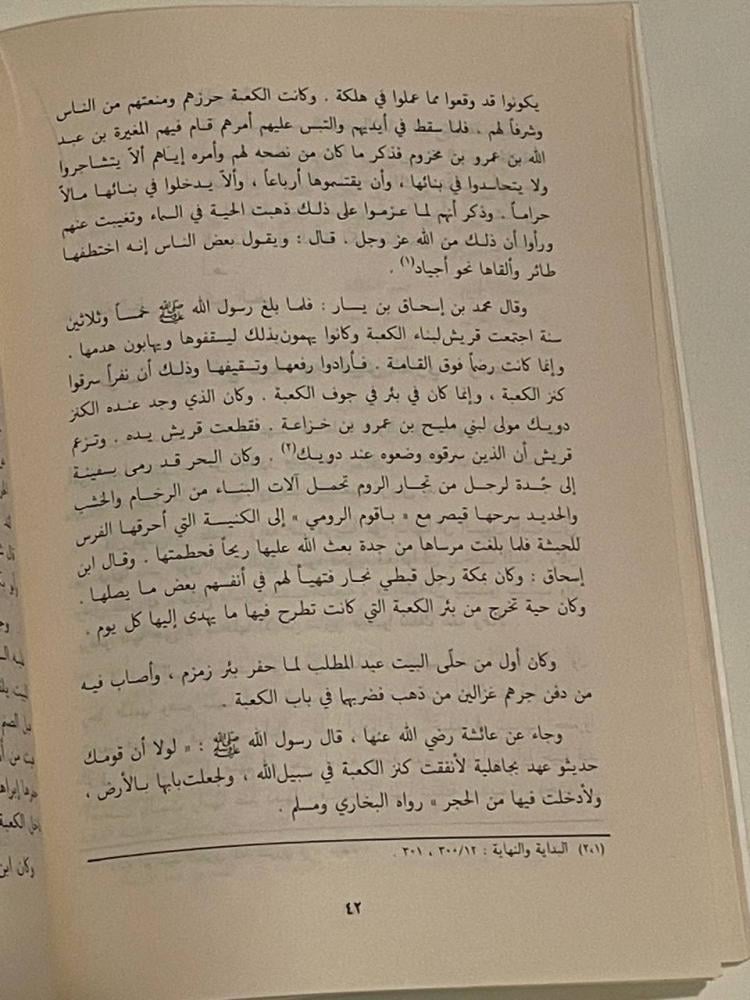 يكونوا قد وقعوا مما عملوا في هلكة . وكانت الكعبة حرزهم ومنعتهم من الناس
وشرفاً لهم . فلما سقط في أيديهم والتبس عليهم أمرهم قام فيهم المغيرة بن عبد
الله بن عمرو بن مخزوم فذكر ما كان من نصحه لهم وأمره إياهم ألاّ يتشاجروا
ولا يتحاسدوا في بنائها ، وأن يقتسموها أرباعاً ، وألاّ يدخلوا في بنائها مالاً
حراماً . وذكر أنهم لما عزموا على ذلك ذهبت الحية في السماء وتغيبت عنهم
ورأوا أن ذلك من الله عز وجل . قال : ويقول بعض الناس إنه اختطفها
طائر وألقاها نحو أجياد(١) .
وقال محمد بن إسحاق بن يسار : فلما بلغ رسول الله ﷺ خمساً وثلاثين
سنة اجتمعت قريش لبناء الكعبة وكانوا يهمون بذلك ليسقفوها ويهابون هدمها .
وإنما كانت رضماً فوق القامة . فأرادوا رفعها وتسقيفها وذلك أن نفراً سرقوا
كنز الكعبة ، وإنما كان في بئر في جوف الكعبة . وكان الذي وجد عنده الكنز
دويك مولى لبني مليح بن عمرو بن خزاعة . فقطعت قريش يده . وتزعم
قريش أن الذين سرقوه وضعوه عند دويك(٢) . وكان البحر قد رمى بسفينة
إلى جُدة لرجل من تجار الروم تحمل آلات البناء من الرخام والخشب
والحديد سرحها قيصر مع « باقوم الرومي » إلى الكنيسة التي أحرقها الفرس
للحبشة فلما بلغت مرساها من جدة بعث الله عليها ريحاً فحطمتها . وقال ابن
إسحاق : وكان بمكة رجل قبطي نجار فتهيأ لهم في أنفسهم بعض ما يصلها .
وكان حية تخرج من بئر الكعبة التي كانت تطرح فيها ما يهدى إليها كل يوم .
وكان أول من حلّى البيت عبد المطلب لما حفر بئر زمزم ، وأصاب فيه
من دفن جرهم غزالين من ذهب فضربها في باب الكعبة .
وجاء عن عائشة رضي الله عنها ، قال رسول الله ﷺ : « لولا أن قومك
حديثو عهد بجاهلية لأنفقت كنز الكعبة في سبيل الله ، ولجعلت بابها بالأرض ،
ولأدخلت فيها من الحجر » رواه البخاري ومسلم .
(٢،١) البداية والنهاية : ٣٠٠/١٢ ، ٣٠١ .
٤٢